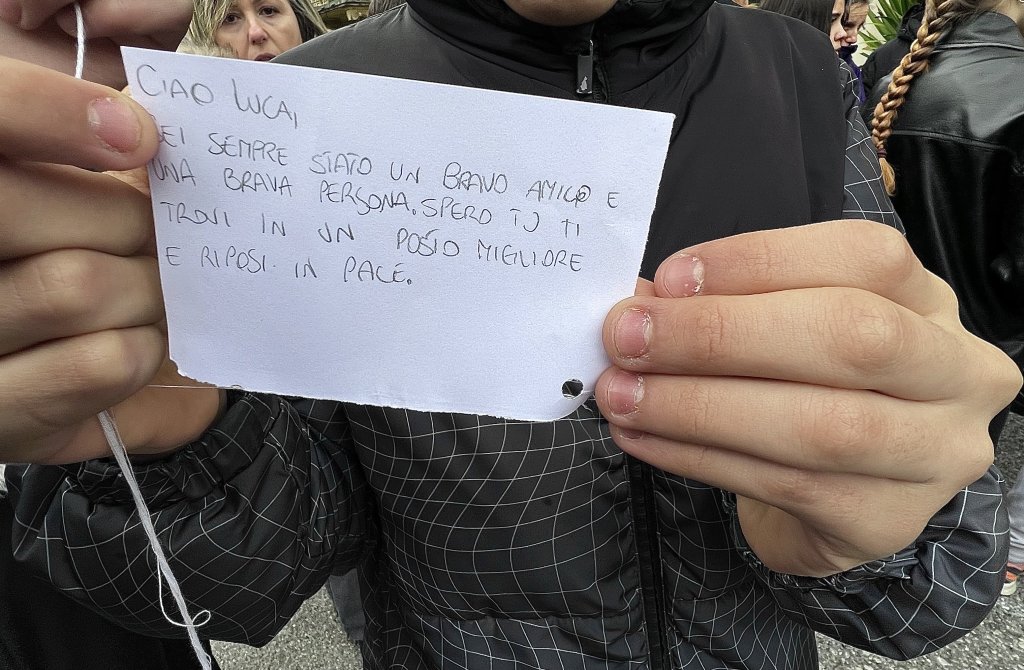 CIAO LUCA,
SEI SEMPRE STATO UN BRAVO AMICO E
UNA BRAVA PERSONA. SPERO TU TI
TROVI IN UN POSTO MIGLIORE
E RIPOSI IN PACE.